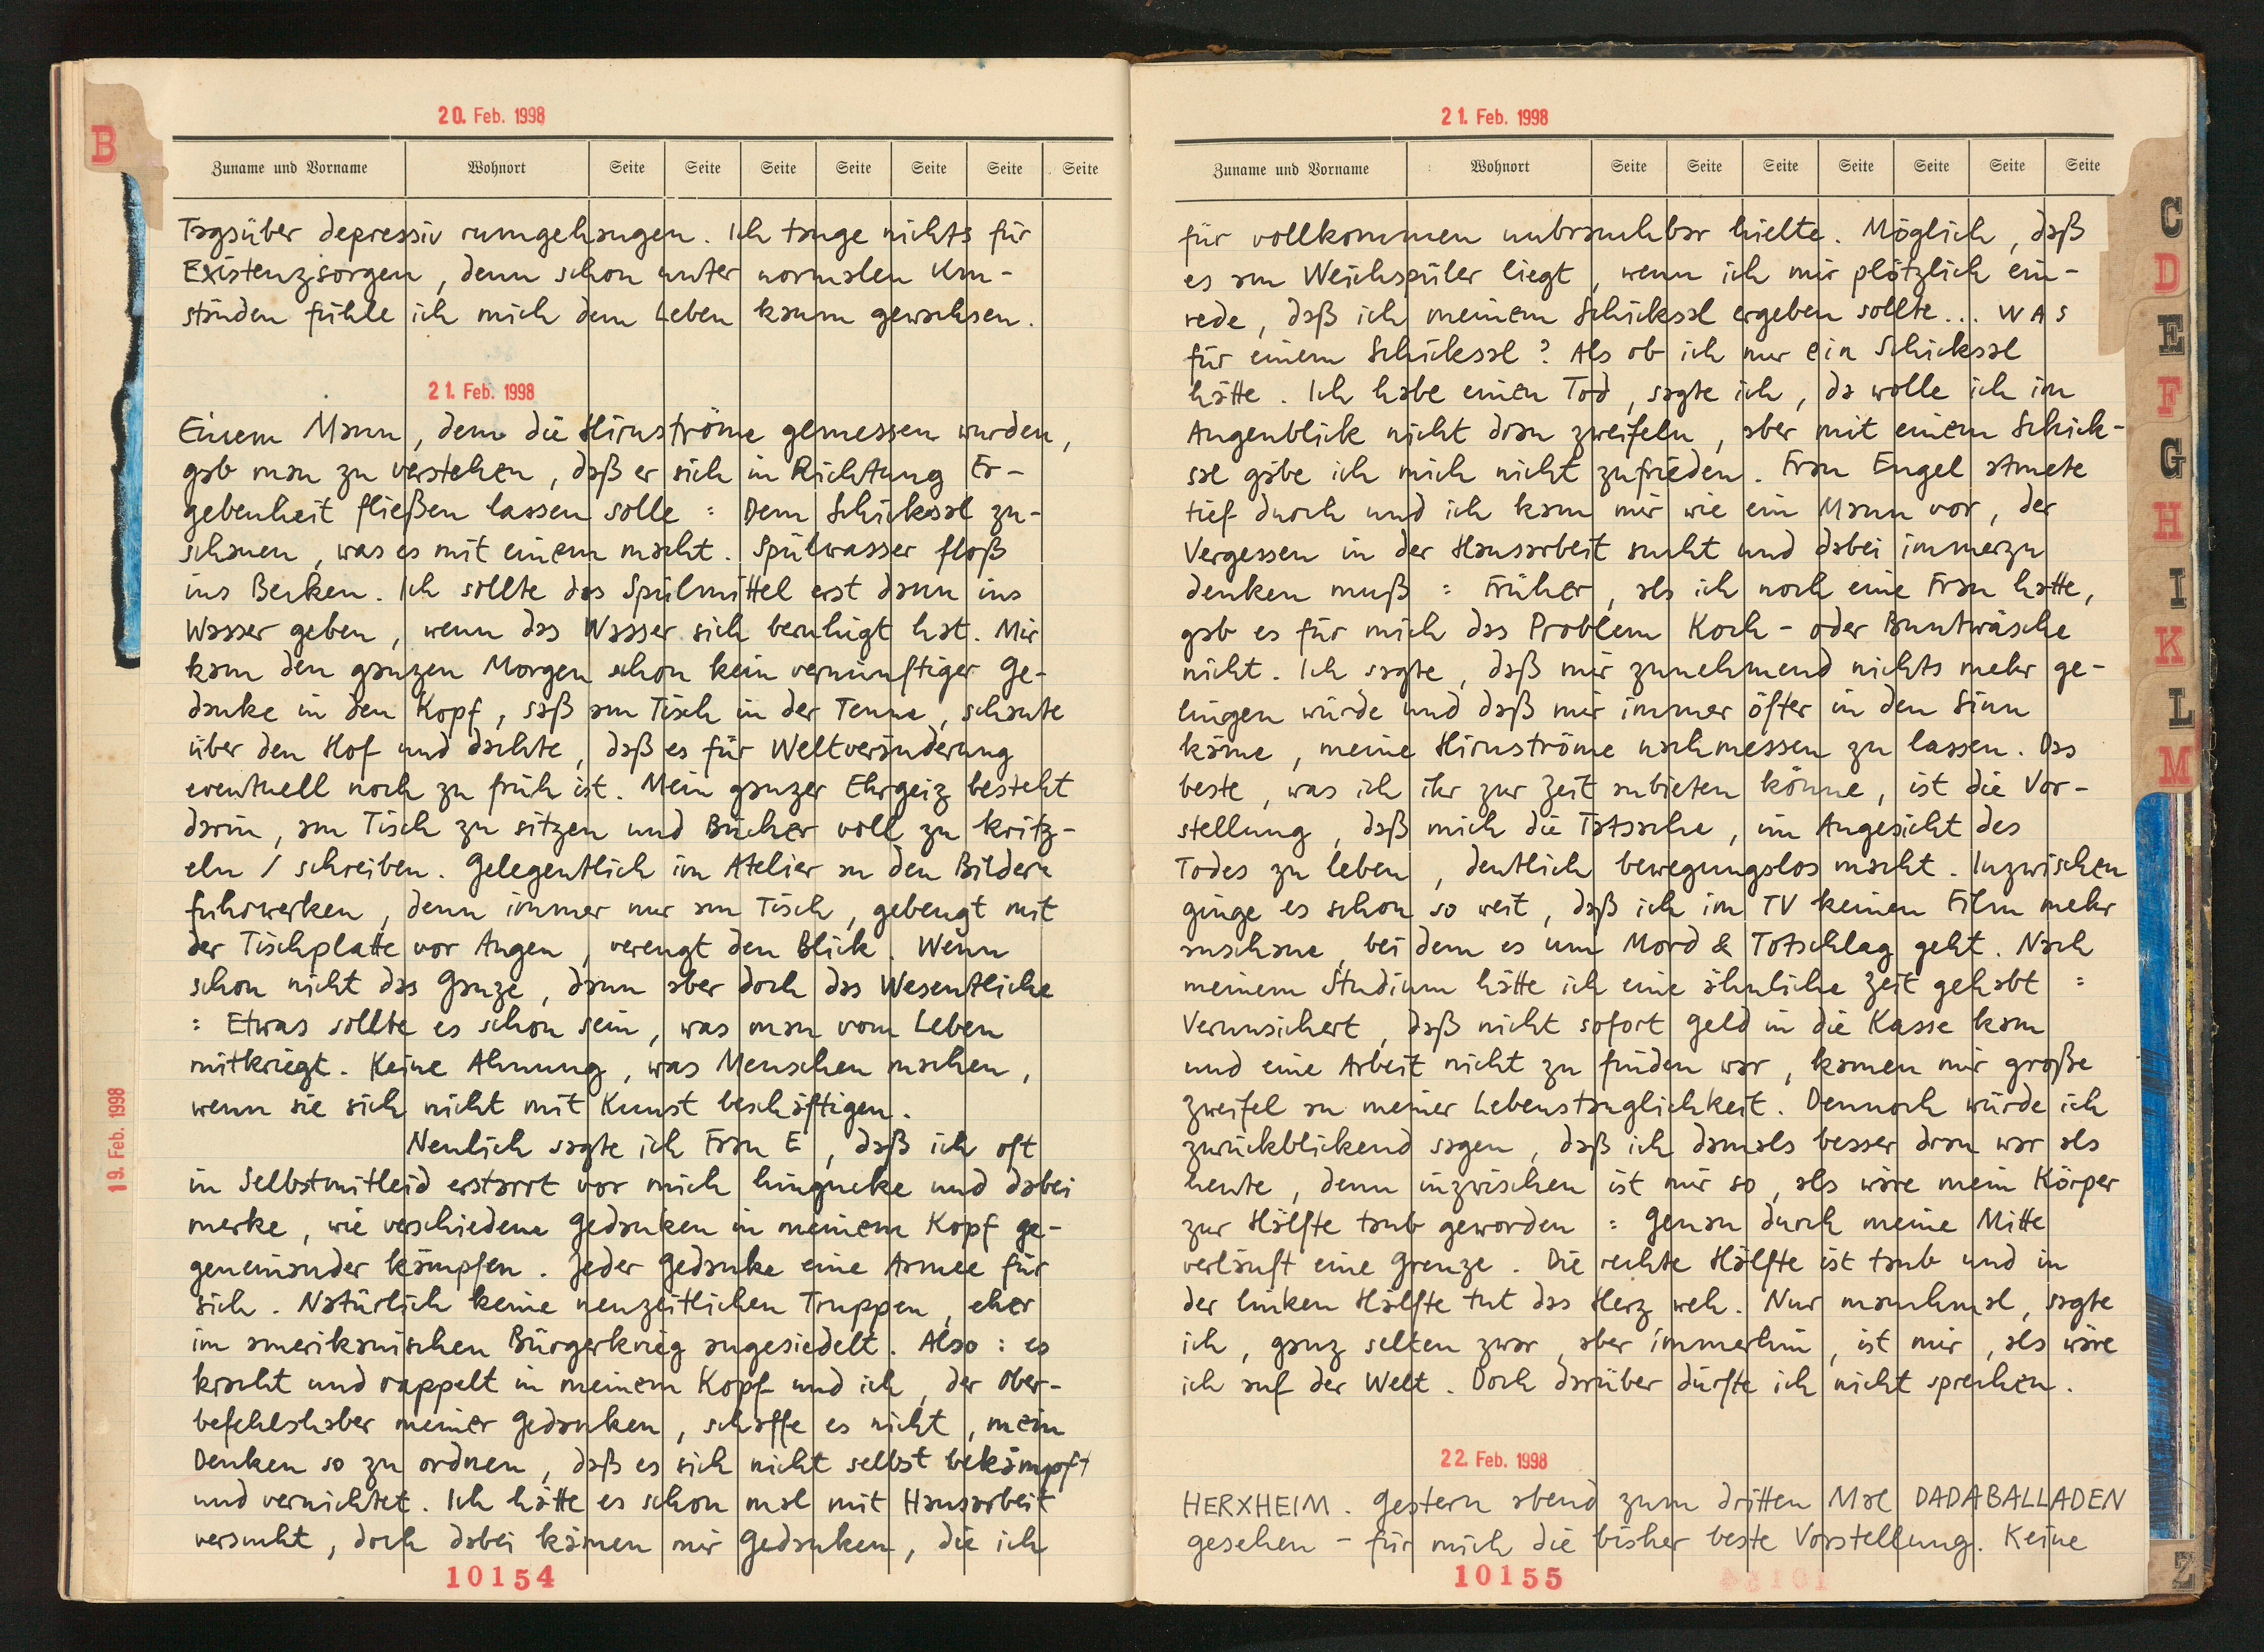 20. Feb. 1998
Zuname und Vorname Wohnort Seite Seite Seite Seite Seite Seite Seite
B
Tagsüber depressiv rumgehangen. Ich tauge nichts für
Existenzsorgen, denn schon unter normalen Um-
ständen fühle ich mich dem Leben kaum gewachsen.
21. Feb. 1998
Einem Mann, dem die Hirnströme gemessen wurden,
gab man zu verstehen, daß er sich in Richtung Er-
gebenheit fließen lassen solle : Dem Schicksal zu-
schauen, was es mit einem macht. Spülwasser floß
ins Becken. Ich sollte das Spülmittel erst dann ins
Wasser geben, wenn das Wasser sich beruhigt hat. Mir
kam den ganzen Morgen schon kein vernünftiger Ge-
danke in den Kopf, saß am Tisch in der Tenne, schaute
über den Hof und dachte, daß es für Weltveränderung
eventuell noch zu früh ist. Mein ganzer Ehrgeiz besteht
darin, am Tisch zu sitzen und Bücher voll zu kritz-
eln / schreiben. Gelegentlich im Atelier an den Bildern
fuhrwerken, denn immer nur am Tisch, gebeugt mit
der Tischplatte vor Augen, verengt den Blick. Wenn
schon nicht das Ganze, dann aber doch das Wesentliche
: Etwas sollte es schon sein, was man vom Leben
mitkriegt. Keine Ahnung, was Menschen machen,
wenn sie sich nicht mit Kunst beschäftigen.
Neulich sagte ich Frau E, daß ich oft
in Selbstmitleid erstarrt vor mich hingucke und dabei
merke, wie verschiedene Gedanken in meinem Kopf ge-
geneinander kämpfen. Jeder Gedanke eine Armee für
sich. Natürlich keine neuzeitlichen Truppen, eher
im amerikanischen Bürgerkrieg angesiedelt. Also : es
kracht und rappelt in meinem Kopf und ich, der Ober-
befehlshaber meiner Gedanken, schaffe es nicht, mein
Denken so zu ordnen, daß es sich nicht selbst bekämpft
und vernichtet. Ich hätte es schon mal mit Hausarbeit
versucht, doch dabei kämen mir Gedanken, die ich
19. Feb. 1998
10154
21. Feb. 1998
Zuname und Vorname Wohnort Seite Seite Seite Seite Seite Seite Seite
für vollkommen unbrauchbar hielte. Möglich, daß
es am Weichspüler liegt, wenn ich mir plötzlich ein-
rede, daß ich meinem Schicksal ergeben sollte... WAS
für einem Schicksal? Als ob ich nur ein Schicksal
hätte. Ich habe einen Tod, sagte ich, da wolle ich im
Augenblick nicht dran zweifeln, aber mit einem Schick-
sal gäbe ich mich nicht zufrieden. Frau Engel atmete
tief durch und ich kam mir wie ein Mann vor, der
Vergessen in der Hausarbeit sucht und dabei immerzu
denken muß : Früher, als ich noch eine Frau hatte,
gab es für mich das Problem Koch- oder Buntwäsche
nicht. Ich sagte, daß mir zunehmend nichts mehr ge-
lingen würde und daß mir immer öfter in den Sinn
käme, meine Hirnströme nachmessen zu lassen. Das
beste, was ich ihr zur Zeit anbieten könne, ist die Vor-
stellung, daß mich die Tatsache, im Angesicht des
Todes zu leben, deutlich bewegungslos macht. Inzwischen
ginge es schon so weit, daß ich im TV keinen Film mehr
anschaue, bei dem es um Mord & Totschlag geht. Nach
meinem Studium hätte ich eine ähnliche Zeit gehabt :
Verunsichert, daß nicht sofort Geld in die Kasse kam
und eine Arbeit nicht zu finden war, kamen mir große
Zweifel an meiner Lebenstauglichkeit. Dennoch würde ich
zurückblickend sagen, daß ich damals besser dran war als
heute, denn inzwischen ist mir so, als wäre mein Körper
zur Hälfte taub geworden : Genau durch meine Mitte
verläuft eine Grenze. Die rechte Hälfte ist taub und in
der linken Hälfte tut das Herz weh. Nur manchmal, sagte
ich, ganz selten zwar, aber immerhin, ist mir, als wäre
ich auf der Welt. Doch darüber dürfte ich nicht sprechen.
22. Feb. 1998
HERXHEIM. Gestern abend zum dritten Mal DADABALLADEN
gesehen - für mich die bisher beste Vorstellung. Keine
10155
C
D
E
F
G
H
I
K
L
M
Z